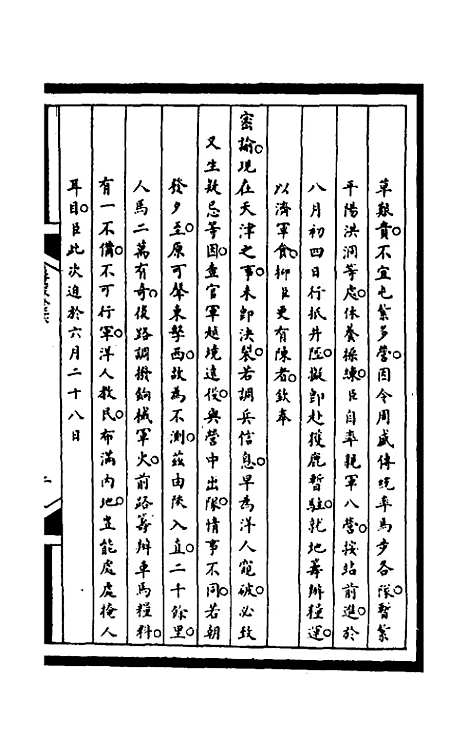 草艱貴不宜屯紮多營因令周盛傳統率馬步各隊暫紮
平陽洪洞等處休養操練臣自率親軍八營接站前進於
八月初四日行抵井陘擬即赴獲鹿暫駐就地籌辦糧運
以濟軍食抑臣更有陳者欽奉
密諭現在天津之事未即決裂若調兵信息早為洋人窺破必致
又生疑忌等因查官軍越境遠役與營中出隊情事不同若朝
發夕至原可聲東擊西故為不測茲由陝入直二十餘里
人馬二萬有奇後路調撥餉械軍火前路籌辦車馬糧料
有一不備不可行軍洋人教民布滿內地豈能處處掩人
耳目臣此次迫於六月二十八日